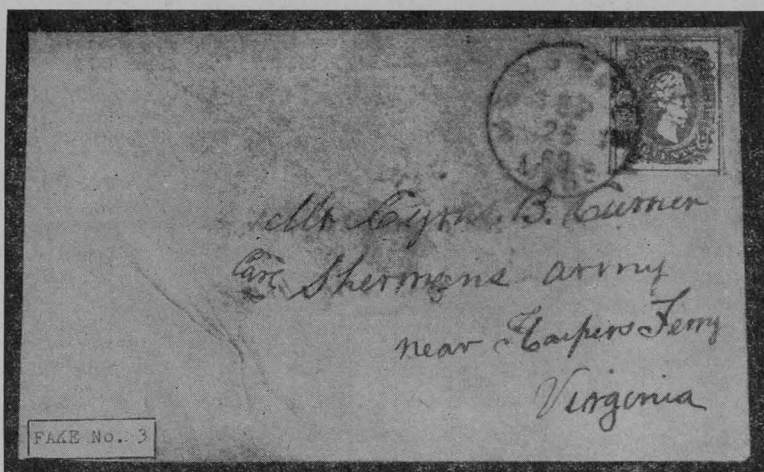 SEP
25
Mr Cyrus B. Currier
Care Shermans army
near Harpers Ferry
Virginia
FAKE No. 3